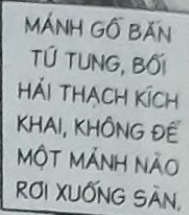 MẢNH GỖ BẮN
TỨ TUNG, BỐI
HẢI THẠCH KÍCH
KHAI, KHÔNG ĐỂ
MỘT MẢNH NÀO
RƠI XUỐNG SÀN.